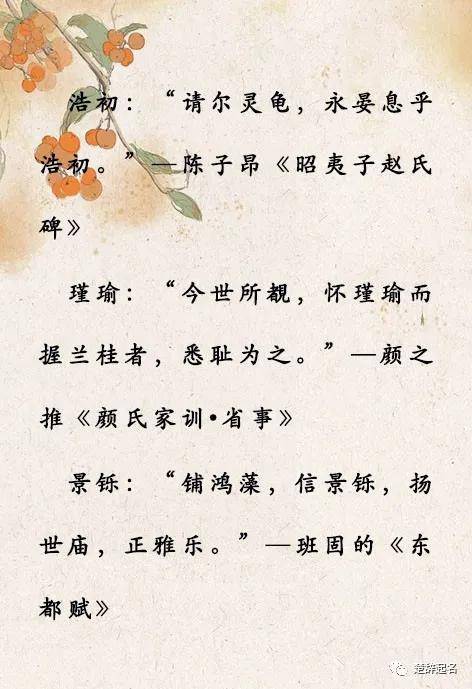 浩初：“请尔灵龟，永晏息乎
浩初。”—陈子昂《昭夷子赵氏
碑》
瑾瑜：“今世所覩，怀瑾瑜而
握兰桂者，悉耻为之。”—颜之
推《颜氏家训•省事》
景铄：“铺鸿藻，信景铄，扬
世庙，正雅乐。”—班固的《东
都赋》
楚辞起名